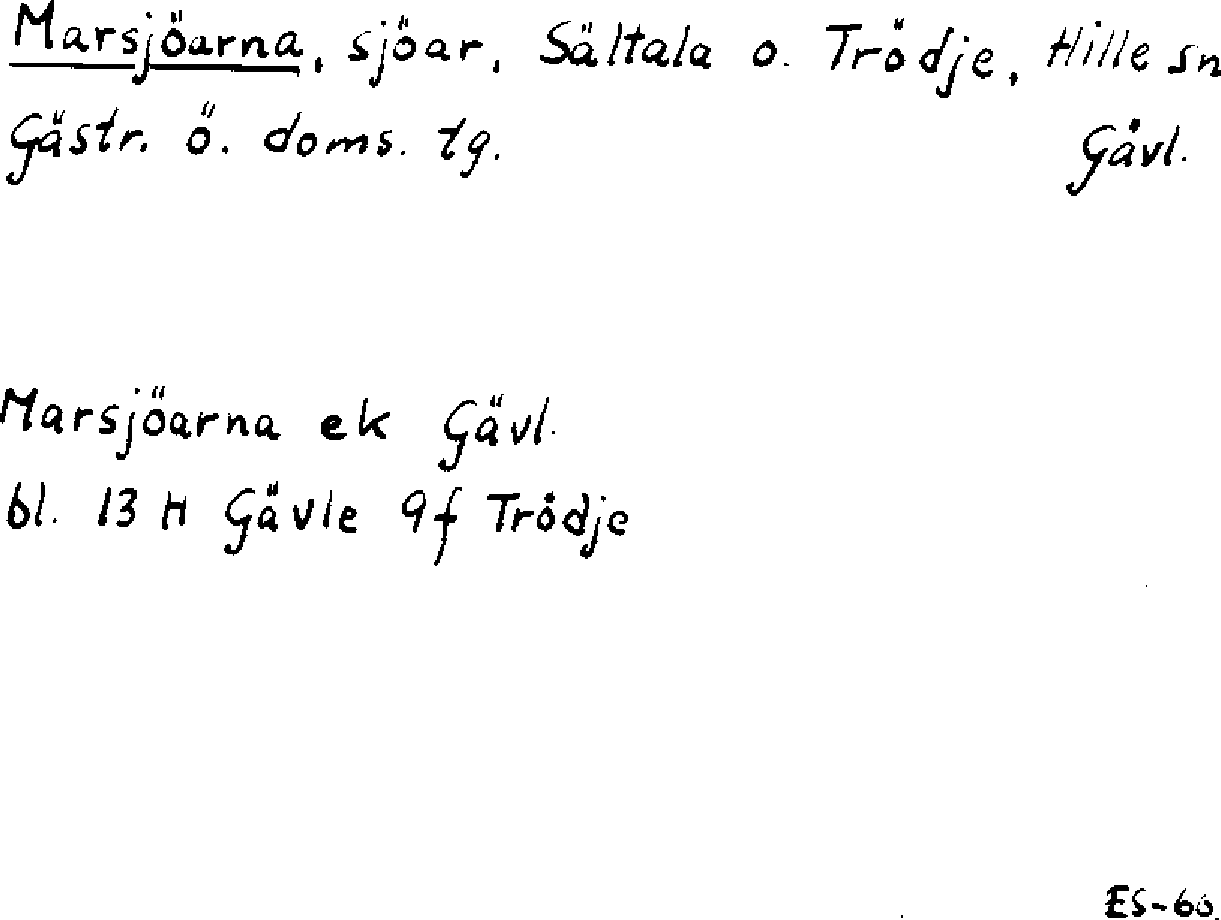 Marsjöarna, sjöar, Sältala o. Trödje, Hille sn
Gästr. ö. doms. tg. Gävl.
Marsjöarna ek Gävl.
bl. 13 H Gävle 9f Trödje
ES-60